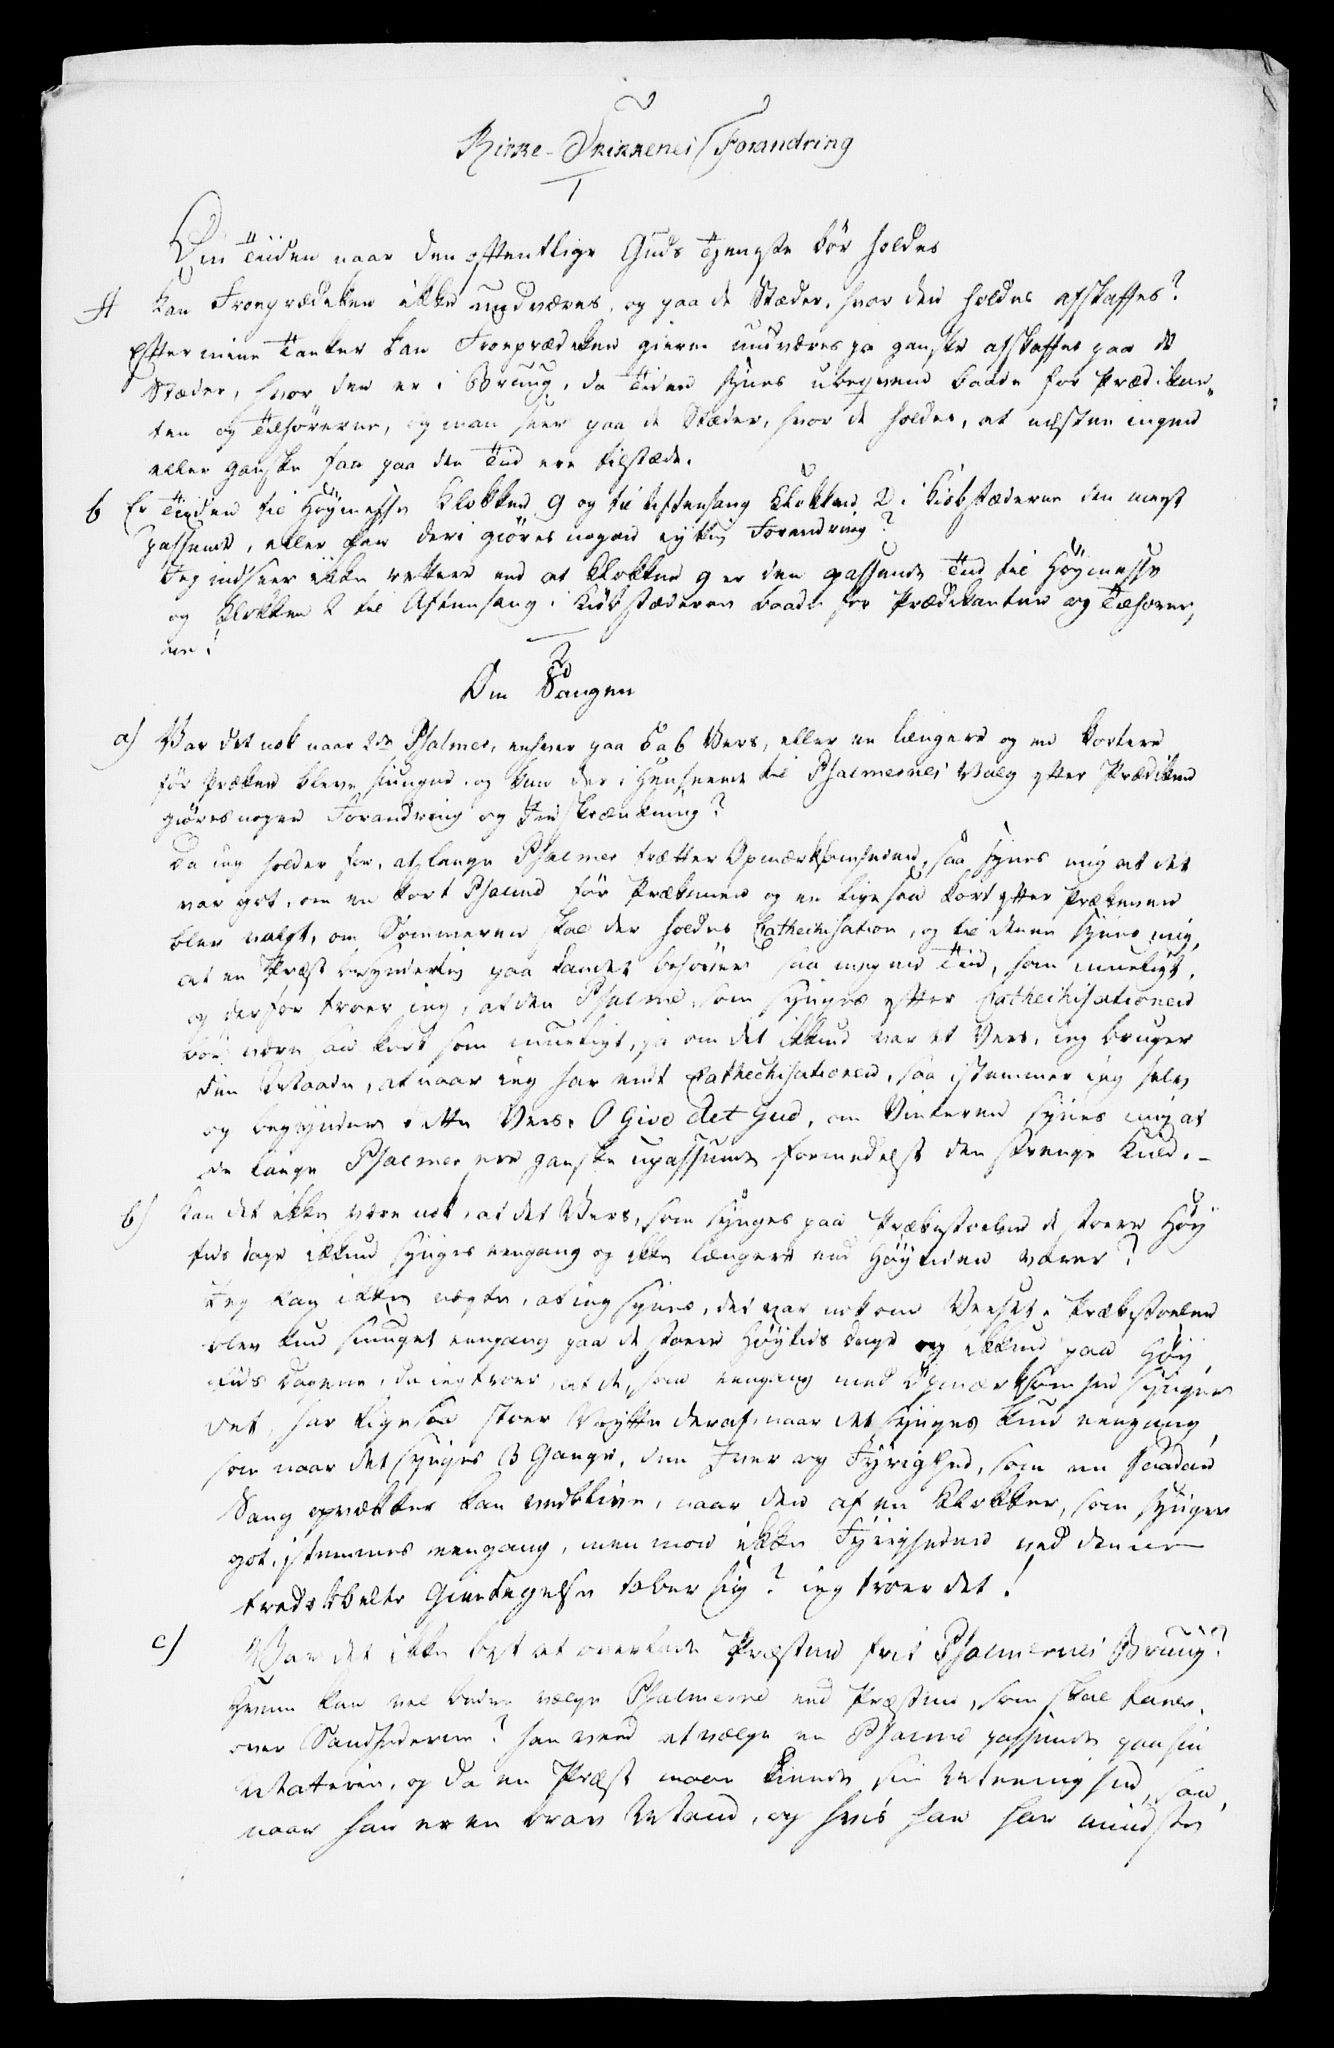 Kirke-Skikkenes Forandring
1
Om Tiiden naar den offentlige Guds Tjeneste bör holdes
A Kan Froeprædiken ikke undværes, og paa de Stæder, hvor den holdes afskaffes?
Efter mine Tanker kan Froeprædiken gierne undværes ja ganske afskaffes paa de
Stæder, hvor den er i Bruug, da Tiden synes ubeqvem baade for Prædikan„
ten og Tilhörerne, og man seer paa de Stæder, hvor de holdes, at næsten ingen
eller ganske faa paa den Tiid ere tilstæde.
b Er Tiiden til Höymesse Klokken 9 og til Aftensang Klokken 2 i Kiöbstæderne den meest
passende, eller kan deri giöres nogen nyttig Forandring?
Jeg indseer ikke rettere end at Klokken 9 er den passende Tiid til Höymesse
og Klokken 2 til Aftensang i Kiöbstæderne baade for Prædikanten og Tilhörer„
ne!
2
Om Sangen
a) Var det nok naar 2de Psalmer, enhver paa 5 a 6 Vers, eller en længere og en kortere
för Præken bleve siungne, og kan der i Henseende til Psalmernes Valg efter Prædiken
giöres nogen Forandring og Indskrænkning?
Da ieg holder for, at lange Psalmer trætter Opmærksomheden, saa synes mig at det
var got, om en kort Psalme för Prækenen og en ligesaa kort efter Prækenen
blev valgt, om Sommeren skal der holdes Cathechisation, og til denne synes mig,
at en Præst besynderlig paa Landet behöver saa megen Tiid, som mueligt,
og derfor troer ieg, at den Psalme, som synges efter Cathechisationen
bör være saa kort som mueligt, ja om det ikkun var et Vers, ieg bruger
den Maade, at naar ieg har endt Cathechisationen, saa istemmer ieg selv
og begynder dette Vers: O Give det Gud, om Vinteren synes mig at
de lange Psalmer ere ganske upassende formedelst den strenge Kuld. –
b) Kan det ikke være nok, at det Vers, som synges paa Prækestoelen de store Höy
tids dage ikkun synges eengang og ikke længere end Höytiden varer?
Jeg kan ikke nægte, at ieg synes, det var nok om Verset i Prækestoelen
blev kun siunget eengang paa de store Höytids Dage og ikkun paa Höy
tids Dagene, da ieg troer, at de, som eengang med Opmærksomhed synger
det, har ligesaa stoer Nytte deraf, naar det synges kun eengang,
som naar det synges 3 Gange, den Iver og Fyrighed, som en saadan
Sang opvækker kan vedblive, naar den af en Klokker, som synger
got, istemmes eengang, men mon ikke Fyrigheden ved denne
tredobbelte Gientagelse taber sig? ieg troer det!
c) Var det ikke best at overlade Præsten frit Psalmernes Bruug?
Hvem kan vel bedre vælge Psalmerne end Præsten, som skal tale
over Sandhederne? han veed at vælge en Psalme passende paa sin
Materie, og da en Præst maae kiende sin Meenighed, saa,
naar han er en brav Mand, og hvis han har mindste